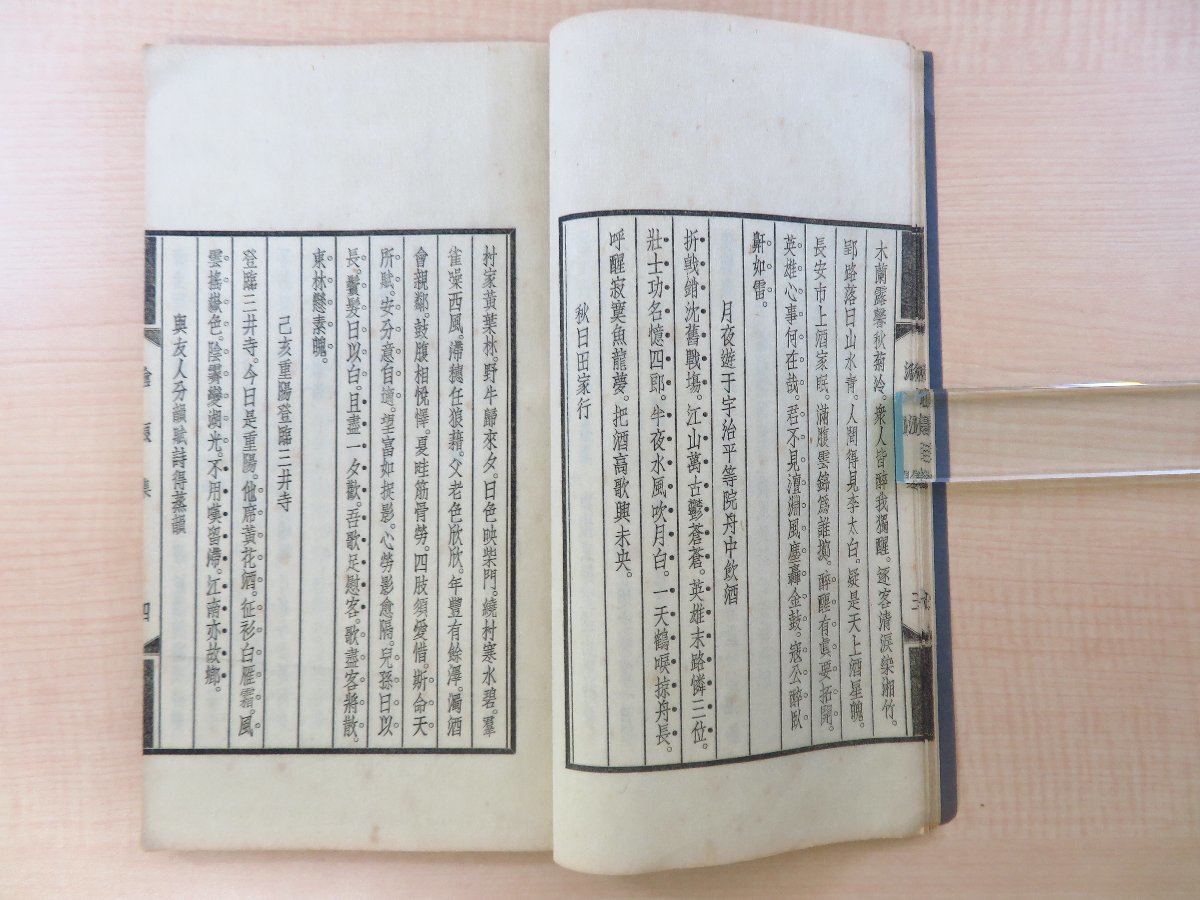 木蘭露馨秋菊冷。衆人皆醉我獨醒。逐客清淚染湘竹。
郢路落日山水青。人間得見李太白。疑是天上酒星魄。
長安市上酒家眠。滿腹雲錦爲誰擲。醉醒有眞要拓開。
英雄心事何在哉。君不見澶淵風塵轟金鼓。寇公醉臥
鼾如雷。
月夜遊于宇治平等院舟中飲酒
折戟銷沈舊戰場。江山萬古鬱蒼蒼。英雄末路憐三位。
壯士功名憶四郎。半夜水風吹月白。一天鶴唳掠舟長。
呼醒寂寞魚龍夢。把酒高歌興未央。
秋日田家行
村家黃葉林。野牛歸來夕。日色映柴門。繞村寒水碧。羣
雀噪西風。滯穗任狼藉。父老色欣欣。年豐有餘澤。濁酒
會親鄰。鼓腹相悅懌。夏畦筋骨勞。四肢須愛惜。斯命天
所賦。安分意自適。望富如捉影。心勞影愈隔。兒孫日以
長。鬢髮日以白。且盡一夕歡。吾歌足慰客。歌盡客將散。
東林懸素魄。
己亥重陽登臨三井寺
登臨三井寺。今日是重陽。他席黃花酒。征衫白雁霜。風
雲搖嶽色。陰霽變湖光。不用嘆留滯。江南亦故鄉。
與友人分韻賦詩得蒸韻
集
四